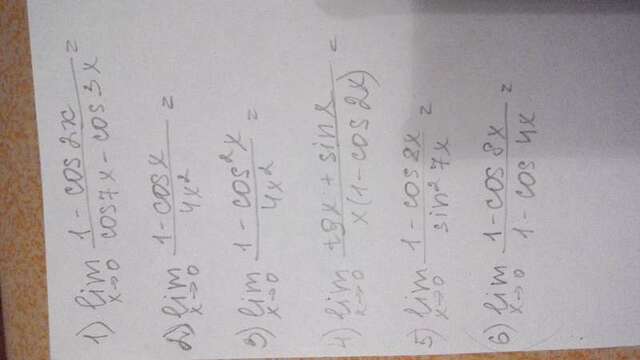 1) lim x→0 (1 - cos 2x)/(cos 7x - cos 3x) =
2) lim x→0 (1 - cos x)/(4x²) =
3) lim x→0 (1 - cos² x)/(4x²) =
4) lim x→0 (tg x + sin x)/(x(1 - cos 2x)) =
5) lim x→0 (1 - cos 2x)/(sin² 7x) =
6) lim x→0 (1 - cos 8x)/(1 - cos 4x) =